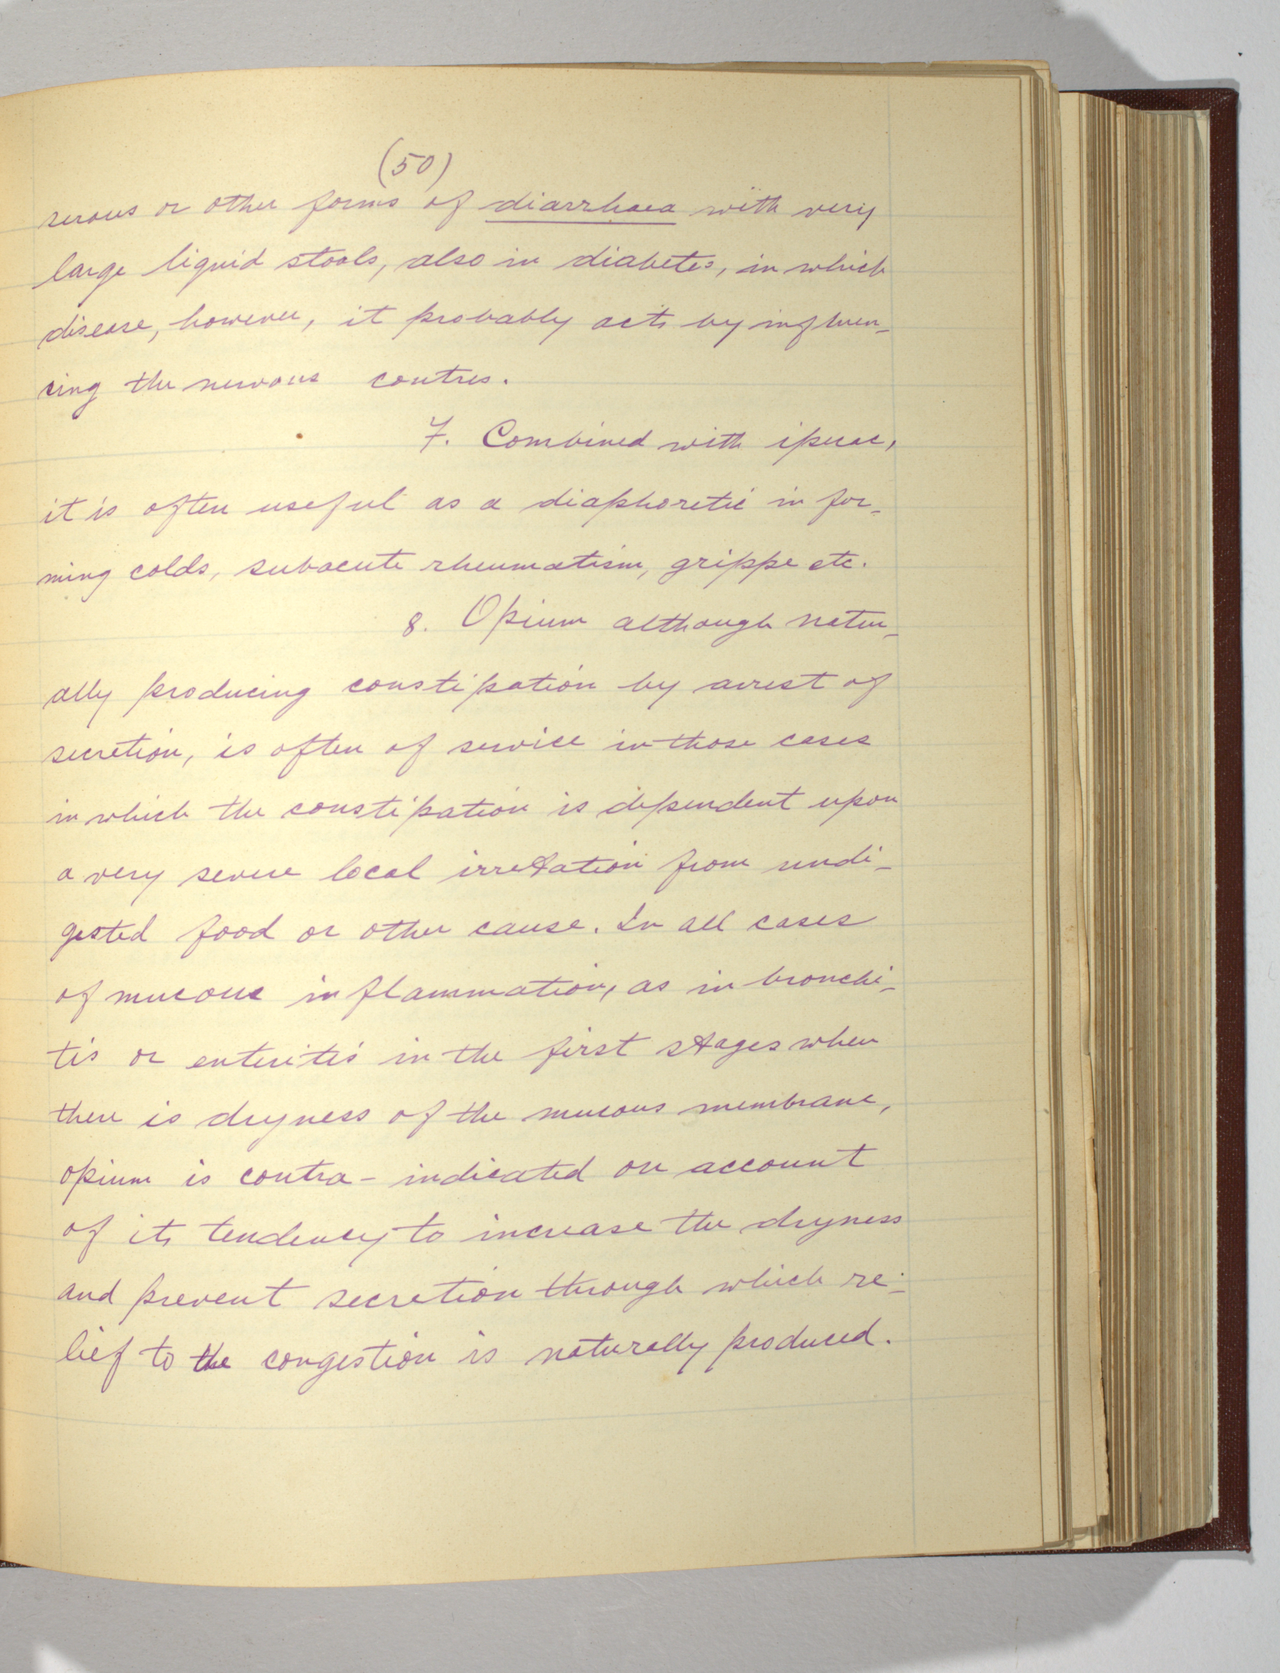 (50)
serous or other forms of diarrhoea with very
large liquid stools, also in diabetes, in which
disease, however, it probably acts by influen-
cing the nervous centres.
7. Combined with ipecac,
it is often useful as a diaphoretic in for-
ming colds, subacute rheumatism, grippe etc.
8. Opium although natur-
ally producing constipation by arrest of
secretion, is often of service in those cases
in which the constipation is dependent upon
a very severe local irretation from undi-
gested food or other cause. In all cases
of mucous inflammation, as in bronchi-
tis or enteritis in the first stages when
there is dryness of the mucous membrane,
opium is contra-indicated on account
of its tendency to increase the dryness
and prevent secretion through which re-
lief to the congestion is naturally produced.